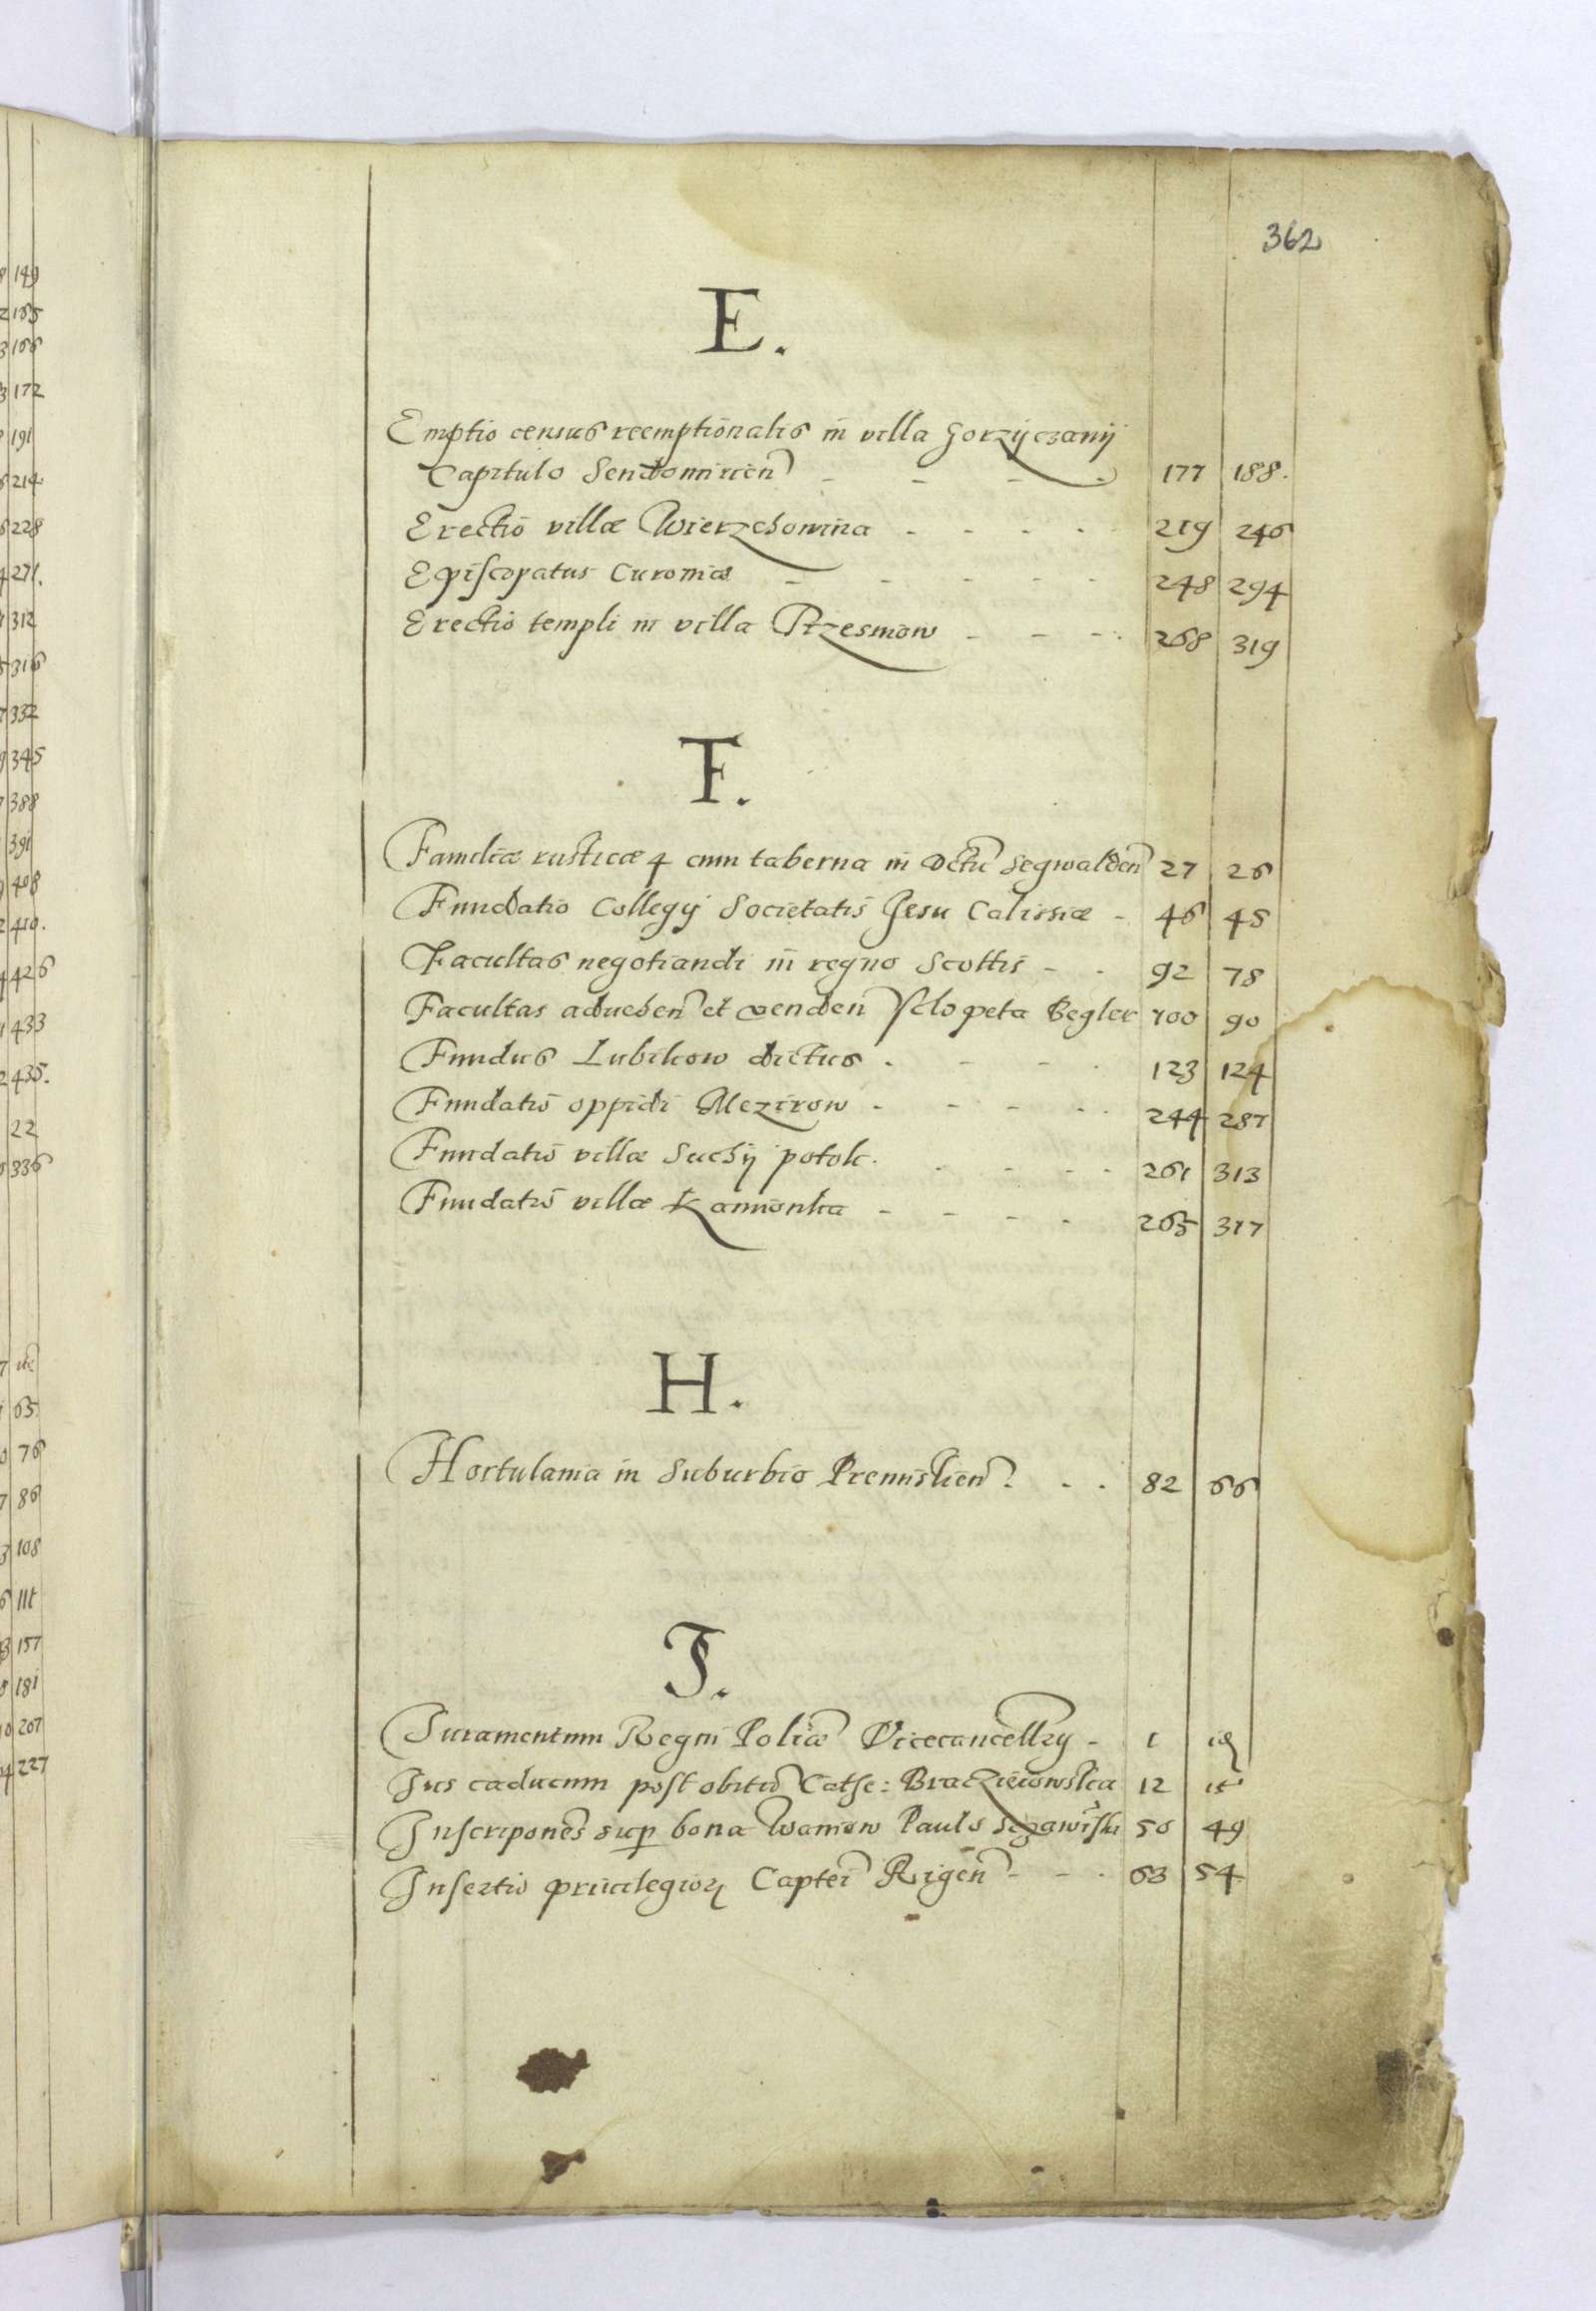 362
E.
Emptio census reemptionalis in villa Gorzyczanij
Capitulo Sendomirien - - - - 177 188.
Erectio villæ Wierzchowina - - - - 219 246
Episcopatus Curoniæ - - - - - 248 294
Erectio templi in villa Rzesniow - - - 268 319
F.
Familiæ rusticæ 4 cum taberna in Dctu Segwalden 27 26
Fundatio Collegij Societatis Jesu Calissiæ - 46 45
Facultas negotiandi in regno Scottis - - 92 78
Facultas aduehen et venden sclopeta Begler 100 90
Fundus Lubikow dictus - - - - 123 124
Fundatio oppidi Mezirow - - - - - 244 287
Fundatio villæ Suchy potok - - - - 261 313
Fundatio villæ Kamionka - - - - 265 317
H.
Hortulania in Suburbio Premislien - - - 82 66
J.
Juramentum Regni Poliæ Vicecancellrij - 1
Jus caducum post obitu Cathe: Bradziciowska 12
Inscripones sup bona Waniow Paulo 50 49
Insertio priuilegior Captei Rigen - - - 63 54
149
165
166
172
191
214
228
271.
312
316
332
345
388
391
408
410.
426
433
435.
22
336
65
76
86
108
111
157
181
207
227